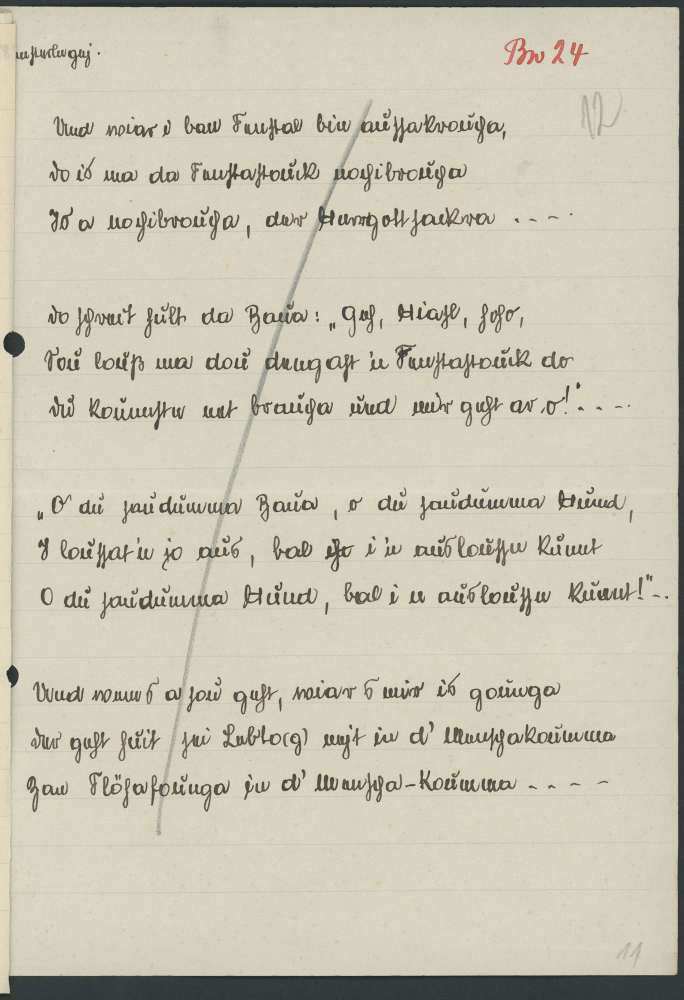 Bw 24
12
Und wiar i ban Fenstal bin aussakroucha,
do is ma da Fenstastouck nochibroucha
Is a nochibroucha, der Herrgottsackra . - - .
do schreit hült da Baua: „Geh, Hiasl, hoho,
Sou louß ma dou dengast 'n Fenstastouck do
dü kounnstn net braucha und mir geht ar o!". . - - .
„O dü saudumma Baua, o dü saudumma Hund,
I loussat'n jo aus, bal i 'n ausloussn kunnt
O dü saudumma Hund, bal i n ausloussn kunnt!" - .
Und wenn's a sou geht, wiar's mir is gounga
der geht heit sei Lebto(g) nejt in d' Menschakoumma
Zan Flöhafounga in d' Menscha-Koumma - - - -
11